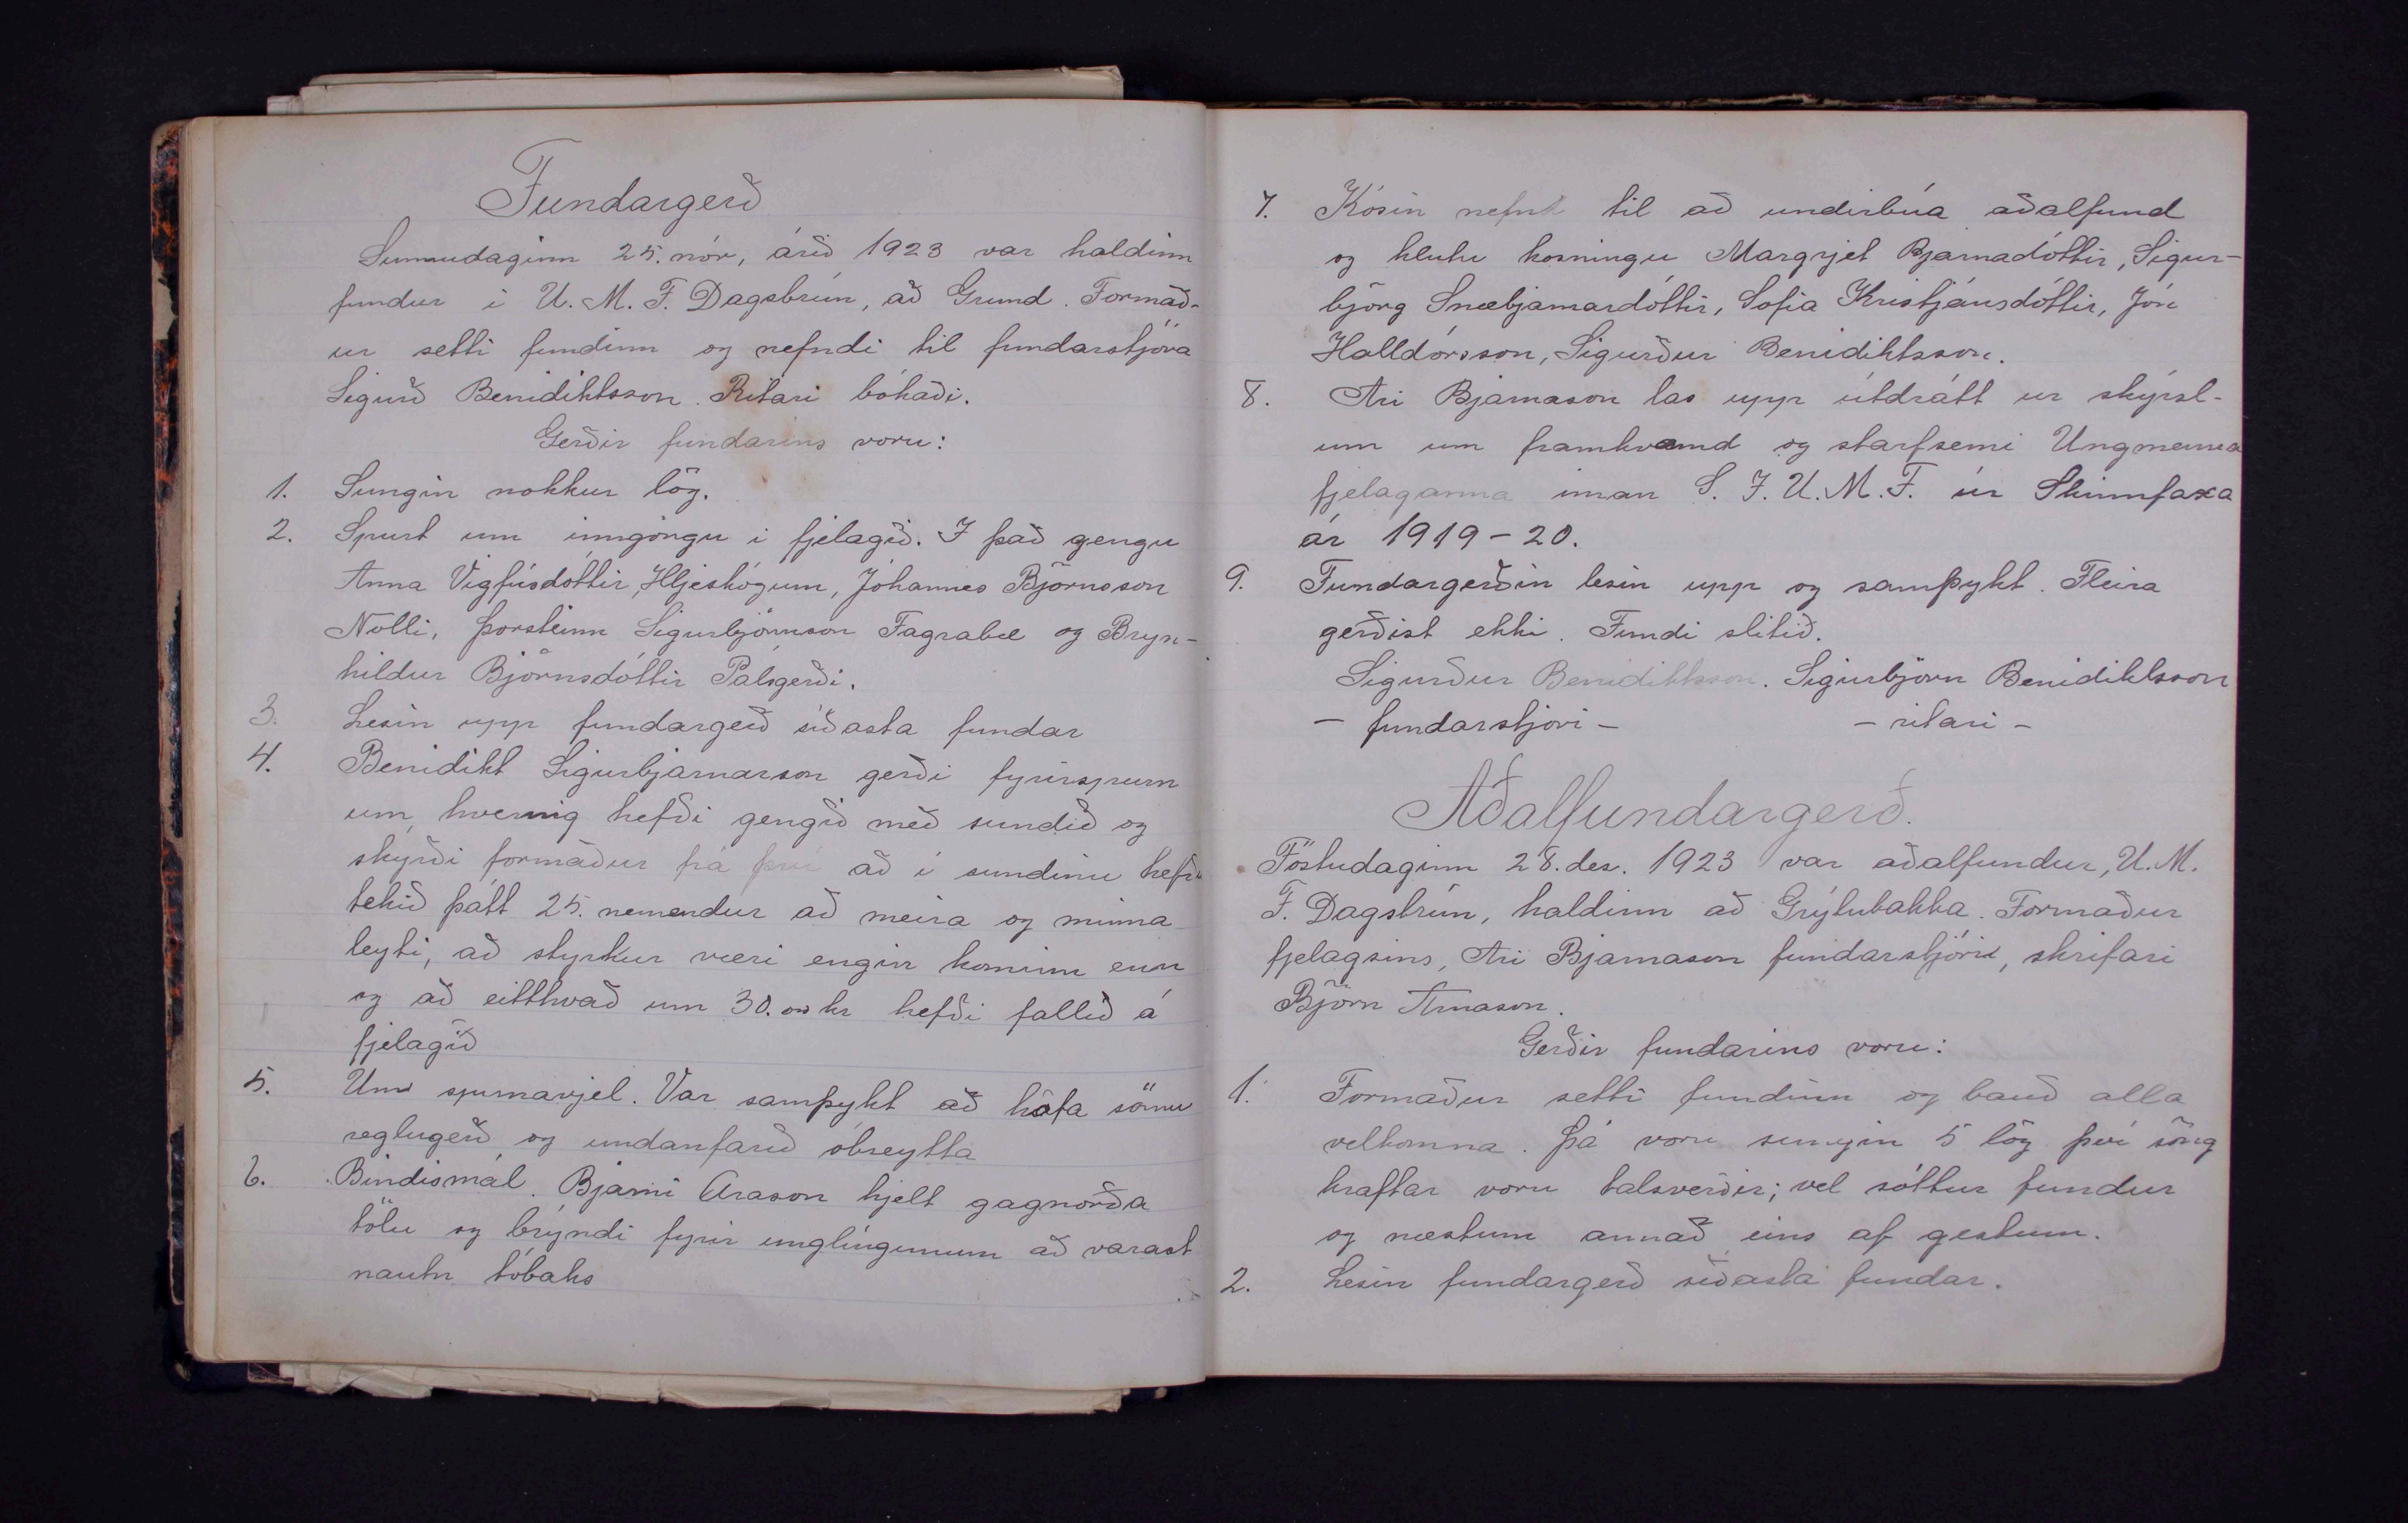 Fundargerð
Sunnudaginn 25. nóv, árið 1923 var haldinn
fundur i U. M. F. Dagsbrún, að Grund. Formað-
ur setti fundinn og nefndi til fundarstjóra
Sigurð Benidiktsson. Ritari bókaði.
Gerðir fundarins voru:
1. Sungin nokkur lög.
2. Spurt um inngöngu i fjelagið. I það gengu
Anna Vigfúsdóttir, Hljeskógum, Jóhannes Björnsson
Nolli, Þorsteinn Sigurbjörnson Fagrabæ og Bryn-
hildur Björnsdóttir Pálsgerði.
3. Lesin upp fundargerð síðasta fundar
4. Benidikt Sigurbjarnarson gerði fyrirspurn
um, hvernig hefði gengið með sundið og
skyrði formaður frá því að i sundinu hefðu
tekið þátt 25. nemendur að meira og minna
leyti, að styrkur væri engin kominn enn
og að eitthvað um 30.00 kr hefði fallið á
fjelagið
5. Um spurnarjel. Var samþykt að hafa sömu
reglugerð og undanfarið óbreytta
6. Bindismál. Bjarni Arason hjelt gagnorða
tölu og brýndi fyrir unglingunum að varast
nautn tóbaks
7. Kósin nefnd til að undirbúa aðalfund
og hlutu kosningu Margrjet Bjarnadóttir, Sigur-
björg Snæbjarnardóttir, Sofia Kristjánsdóttir, Jón
Halldórsson, Sigurður Benidiktsson.
8. Ari Bjarnason las upp útdrátt ur skýrsl-
um um framkvæmd og starfsemi Ungmenna
fjelaganna innan S. I. U. M. F. úr Skinnfaxa
ár 1919-20.
9. Fundargerðin lesin upp og samþykt. Fleira
gerðist ekki. Fundi slitið.
Sigurður Benidiktsson. Sigurbjörn Benidiktsson
- fundarstjóri - - ritari -
Aðalfundargerð.
Föstudaginn 28. des. 1923 var aðalfundur, U. M.
F. Dagsbrún, haldinn að Grýtubakka. Formaður
fjelagsins, Ari Bjarnason fundarstjóri, skrifari
Björn Árnason.
Gerðir fundarins voru:
1. Formaður setti fundinn og bauð alla
velkomna. Þá voru sungin 5 lög því söng
kraftar voru talsverðir; vel sóttur fundur
og næstum annað eins af gestum.
2. Lesin fundargerð síðasta fundar.